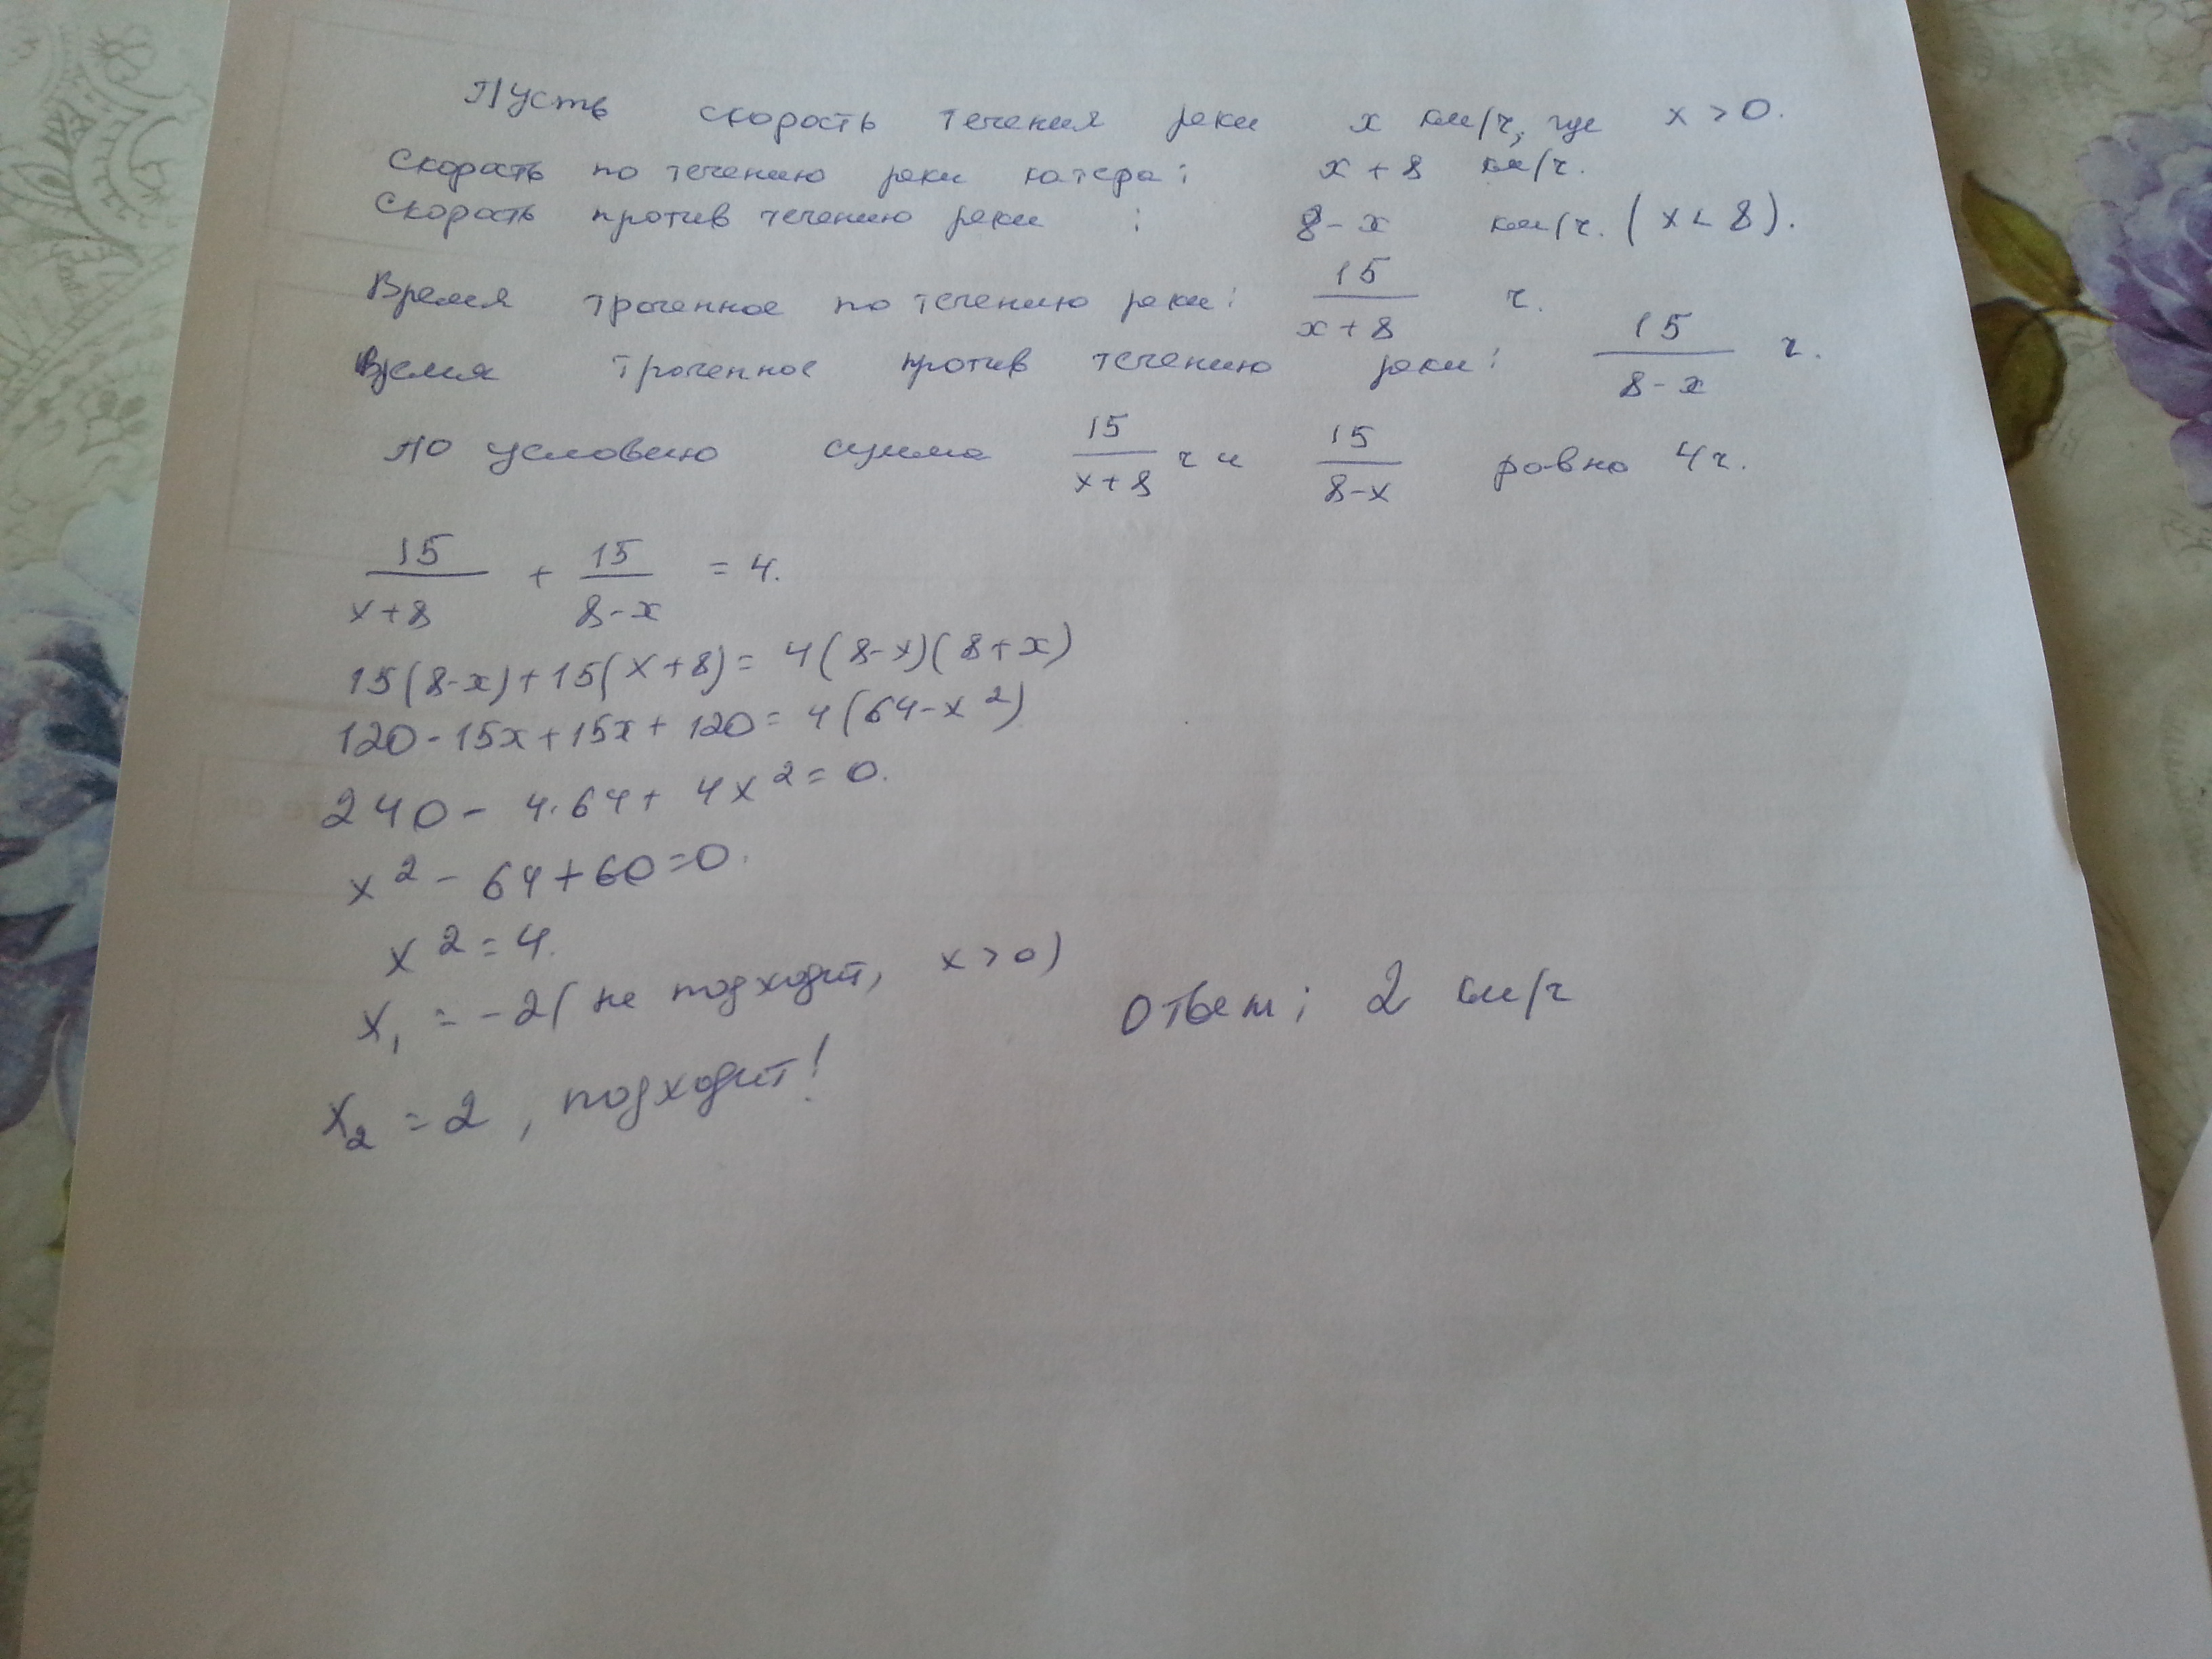 Пусть скорость течения реки x км/ч, где x > 0.
Скорость по течению реки катера: x + 8 км/ч.
Скорость против течению реки : 8 - x км/ч. (x < 8).
Время троченное по течению реки: 15/(x+8) ч.
Время троченное против течению реки: 15/(8-x) ч.
По условию сумма 15/(x+8) ч и 15/(8-x) равно 4ч.
15/(x+8) + 15/(8-x) = 4.
15(8-x)+15(x+8)= 4(8-x)(8+x)
120-15x+15x+120= 4(64-x²)
240- 4·64+ 4x²=0.
x²- 64+60=0.
x²=4.
x₁ = -2( не подходит, x>0)
x₂ =2 , подходит!
Ответ: 2 км/ч